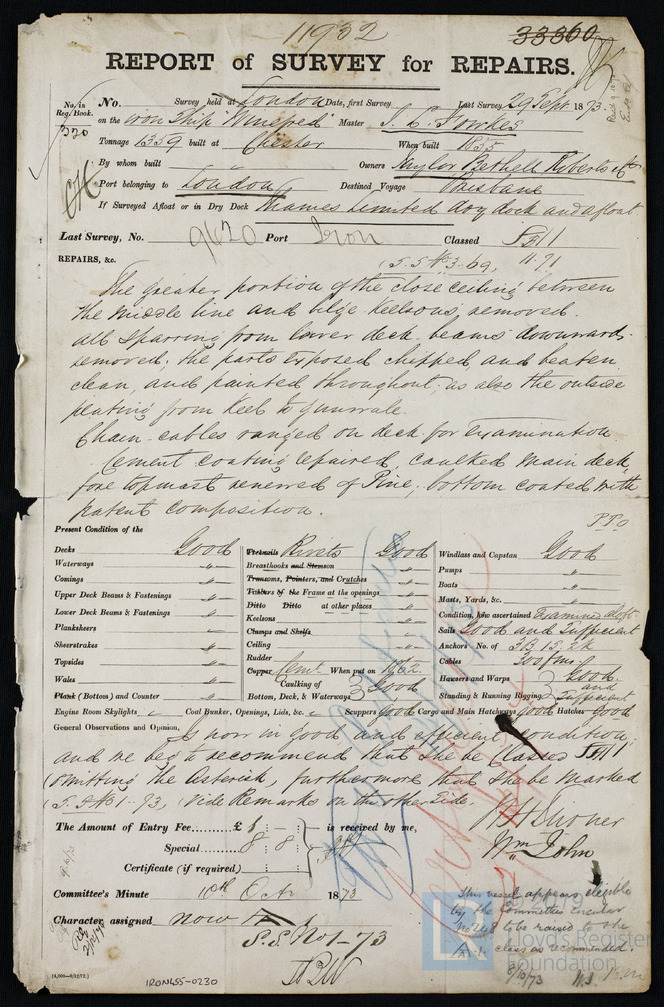 11932
33360
REPORT of SURVEY for REPAIRS.
No. in Reg. Book. No. Survey held at London Date, first Survey Last Survey 29 Sept. 1873.
320 on the Iron Ship "Winefred" Master
Tonnage 1359 built at Chester When built
By whom built Owners Taylor Bethell Roberts & Co
Port belonging to London Destined Voyage Brisbane
If Surveyed Afloat or in Dry Dock Thames Limited dry dock and afloat
Last Survey, No. 9620 Port Iron Classed
REPAIRS, &c. 11.71
The greater portion of the close ceiling between
the middle line and bilge keelsons removed.
all sparring from lower deck beams downwards
removed, the parts exposed chipped and beaten
clean, and painted throughout, as also the outside
plating from keel to gunwale.
Chain cables ranged on deck for examination
Cement coating repaired, caulked main deck,
fore topmast renewed of Pine, bottom coated with
patent composition.
P.T.O
Present Condition of the
Decks Good
Waterways "
Comings "
Upper Deck Beams & Fastenings "
Lower Deck Beams & Fastenings "
Planksheers "
Sheerstrakes "
Topsides "
Wales "
Plank (Bottom) and Counter "
Treenails Rivets Good
Breasthooks and Stemson "
Transoms, Pointers, and Crutches "
Timbers of the Frame at the openings "
Ditto Ditto at other places "
Keelsons "
Clamps and Shelfs "
Ceiling "
Rudder "
Copper Cemt. When put on
Caulking of Bottom, Deck, & Waterways } Good
Windlass and Capstan Good
Pumps "
Boats "
Masts, Yards, &c. "
Condition, how ascertained Examined aloft
Sails Good and Sufficient
Anchors No. of 3B, 1S, 2K
Cables 300 fms
Hawsers and Warps } Good
Standing & Running Rigging } and Sufficient
Engine Room Skylights Coal Bunker, Openings, Lids, &c. Scuppers Good Cargo and Main Hatchways Good Hatches Good
General Observations and Opinion, Is now in good and efficient condition,
and we beg to recommend that she be Classed
(omitting the asterisk, furthermore that she be marked
(S.S. No 1-73, (Vide Remarks on the other side.
The Amount of Entry Fee........£ : : is received by me,
Special........ 8 : 8 :
Certificate (if required)........ : :
Wm John
Committee's Minute 10th Oct 1873
Character assigned now
S.S. No 1-73
This vessel appears eligible
by the Committee Circular
to be raised to the
class as recommended.
8/10/73
IRON455-0230
© 2019
Lloyd's Register
Foundation